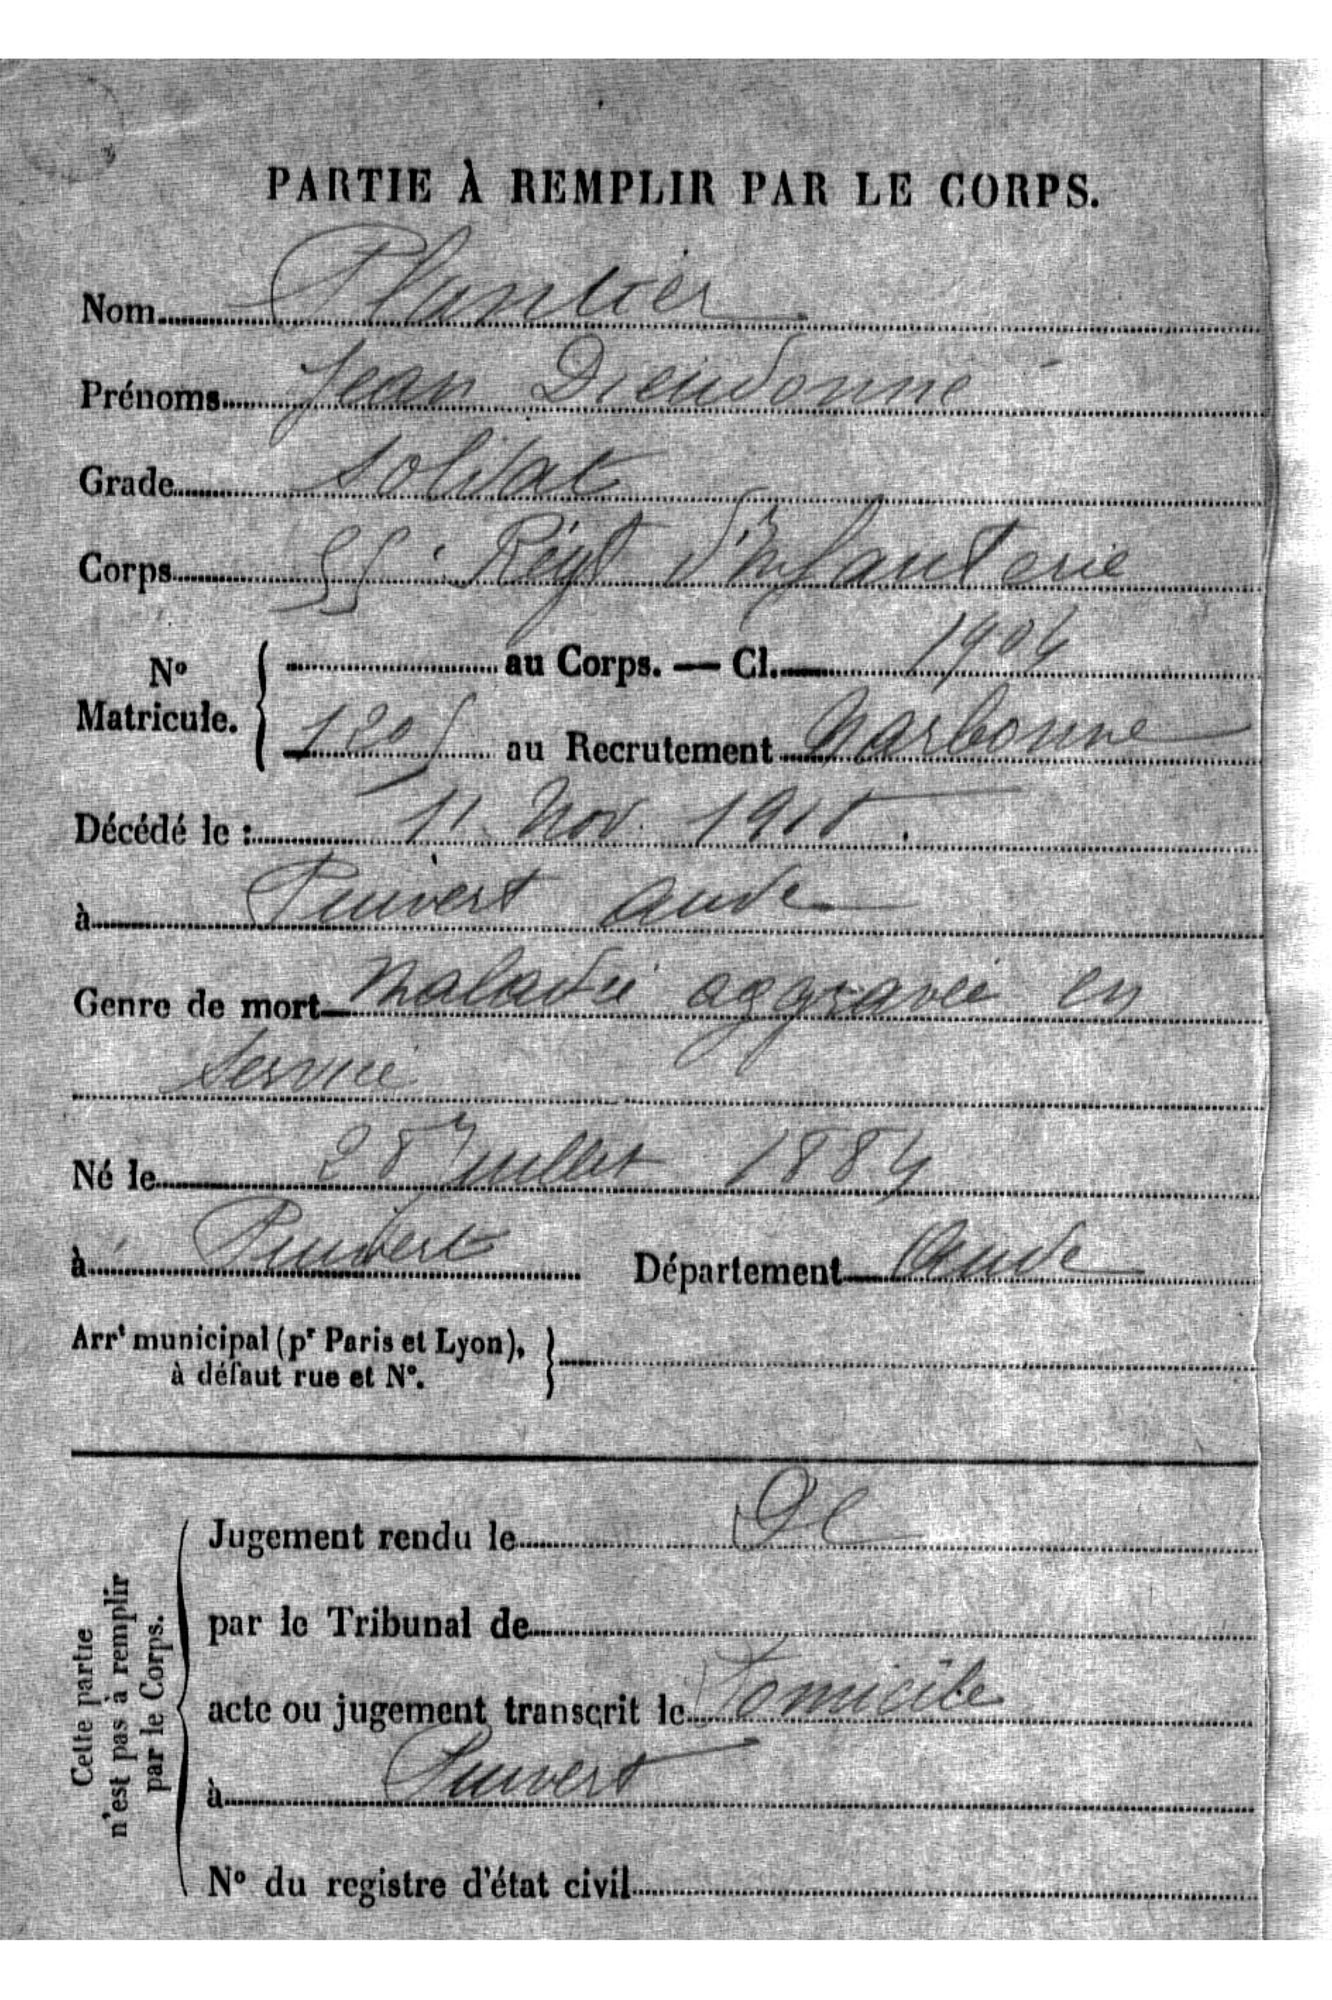 PARTIE À REMPLIR PAR LE CORPS.
Nom Plantier
Prénoms Jean Dieudonné
Grade Soldat
Corps 55e Régt d'Infanterie
No Matricule. { au Corps. — Cl. 1904
1205 au Recrutement Narbonne
Décédé le : 11 Nov. 1915.
à Puivert Aude
Genre de mort Maladie aggravée en
Service
Né le 28 Juillet 1884
à Puivert Département Aude
Arrt municipal (pr Paris et Lyon),
à défaut rue et No.
Cette partie
n'est pas à remplir
par le Corps.
Jugement rendu le
par le Tribunal de
acte ou jugement transcrit le Domicile
à Puivert
No du registre d'état civil